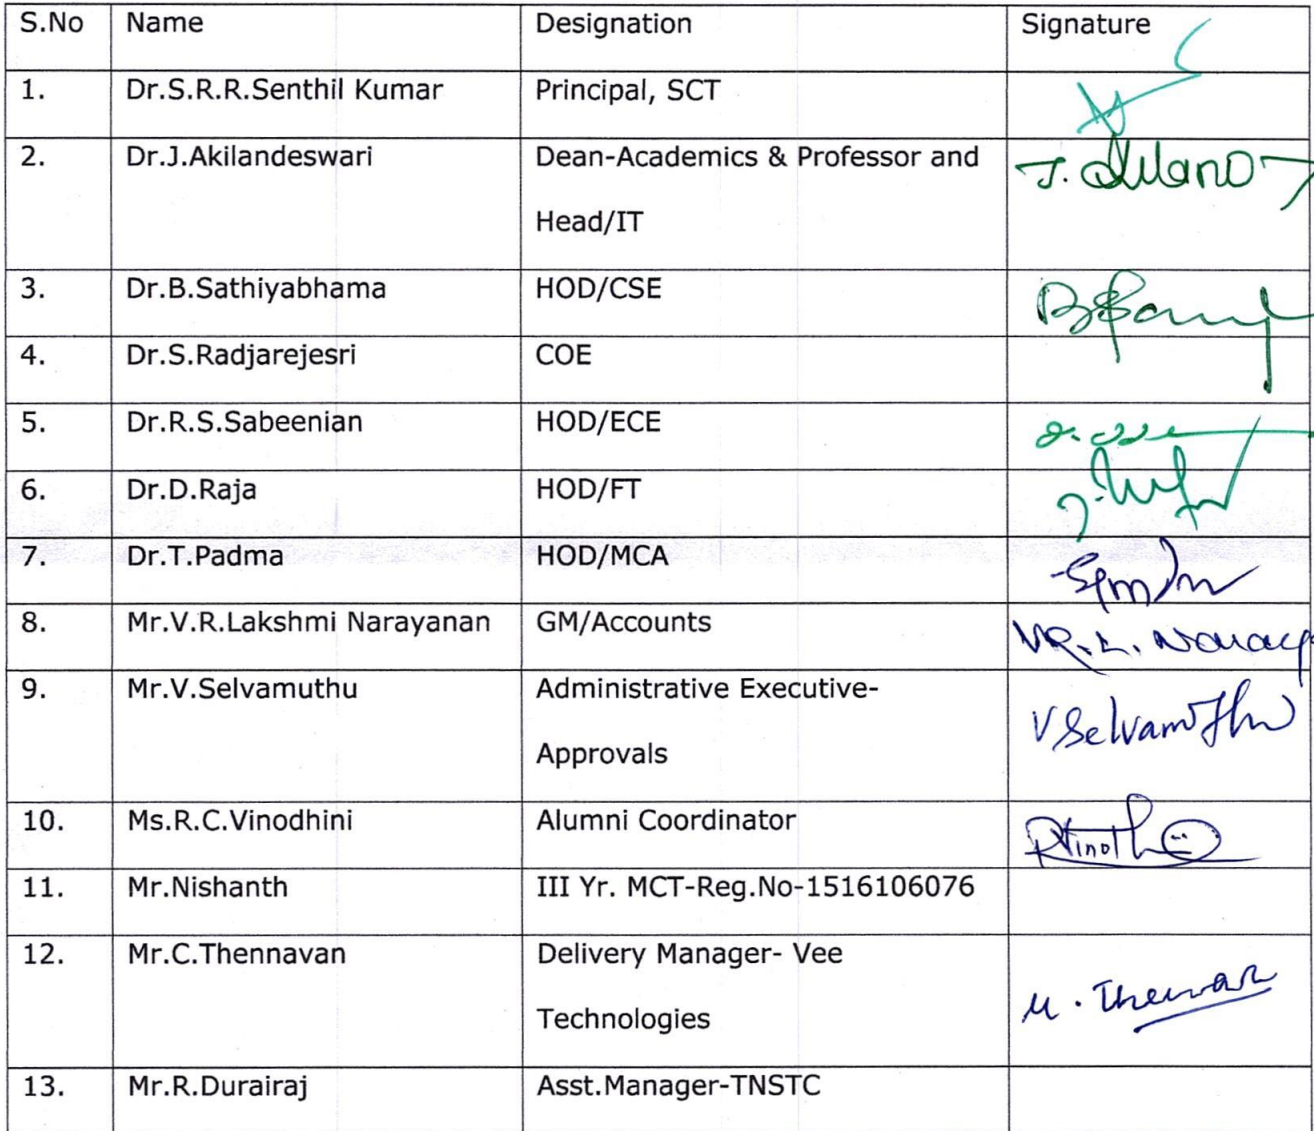 S.No Name Designation Signature
1. Dr.S.R.R.Senthil Kumar Principal, SCT
2. Dr.J.Akilandeswari Dean-Academics & Professor and
Head/IT
3. Dr.B.Sathiyabhama HOD/CSE
4. Dr.S.Radjarejesri COE
5. Dr.R.S.Sabeenian HOD/ECE
6. Dr.D.Raja HOD/FT
7. Dr.T.Padma HOD/MCA
8. Mr.V.R.Lakshmi Narayanan GM/Accounts
9. Mr.V.Selvamuthu Administrative Executive-
V Selvamuthu
Approvals
10. Ms.R.C.Vinodhini Alumni Coordinator
11. Mr.Nishanth III Yr. MCT-Reg.No-1516106076
12. Mr.C.Thennavan Delivery Manager- Vee
Technologies
13. Mr.R.Durairaj Asst.Manager-TNSTC